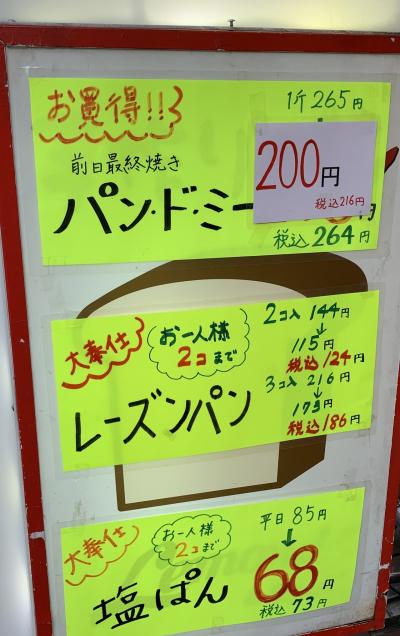 お買得!!
1斤265円
前日最終焼き
200円
税込216円
パン・ド・ミー
円
税込264円
大奉仕
お一人様
2コまで
レーズンパン
2コ入 144円
↓
115円
税込124円
3コ入 216円
↓
173円
税込186円
大奉仕
お一人様
2コまで
塩ぱん
平日85円
↓
68円
税込73円